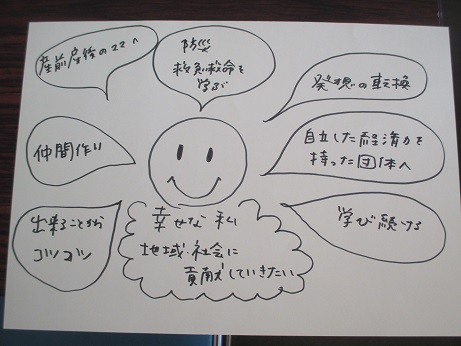 産前産後のママへ
防災
救急救命を
学ぶ
発想の転換
仲間作り
自立した経済力を
持った団体へ
出来ることから
コツコツ
学び続ける
幸せな私
地域・社会に
貢献していきたい